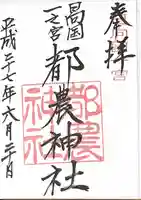 奉拝
日向国
一之宮
都農神社
平成二十七年六月二十日
都農
神社